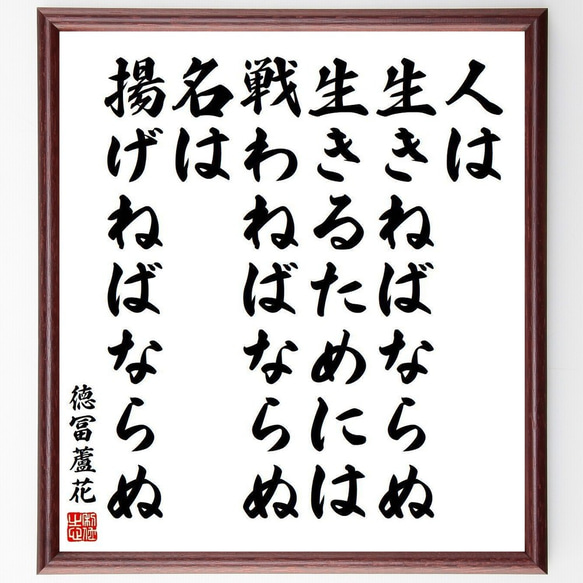 人は
生きねばならぬ
生きるためには
戦わねばならぬ
名は
揚げねばならぬ
徳冨蘆花